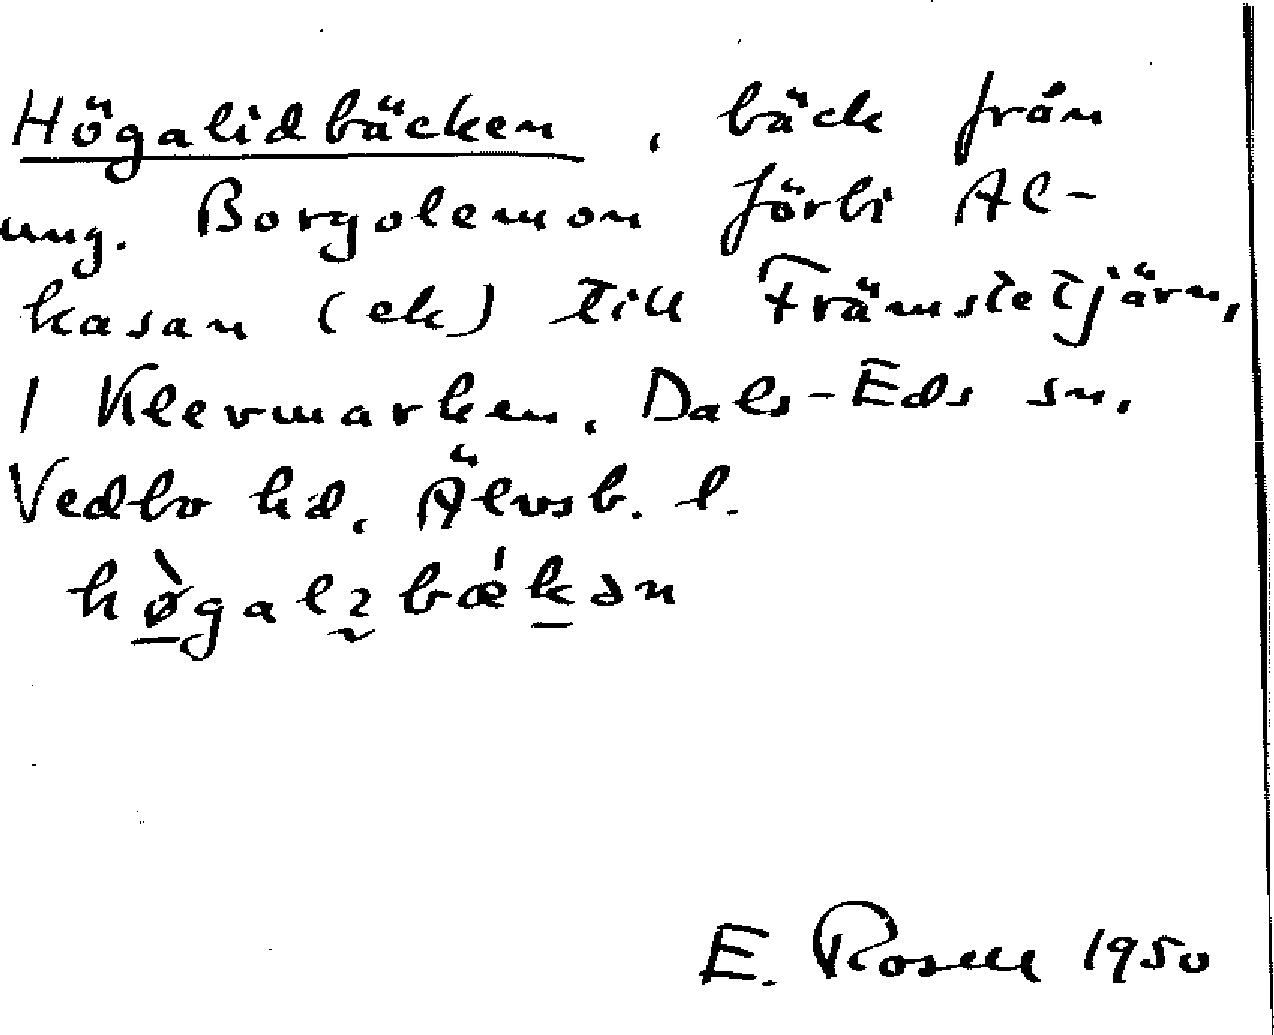 Högalidbäcken, bäck från
ung. Borgolemon förbi Al-
kasan (ek) till Främstetjärn,
1 Klevmarken, Dals-Eds sn,
Vedbo hd, Älvsb. l.
E. Rosell 1950